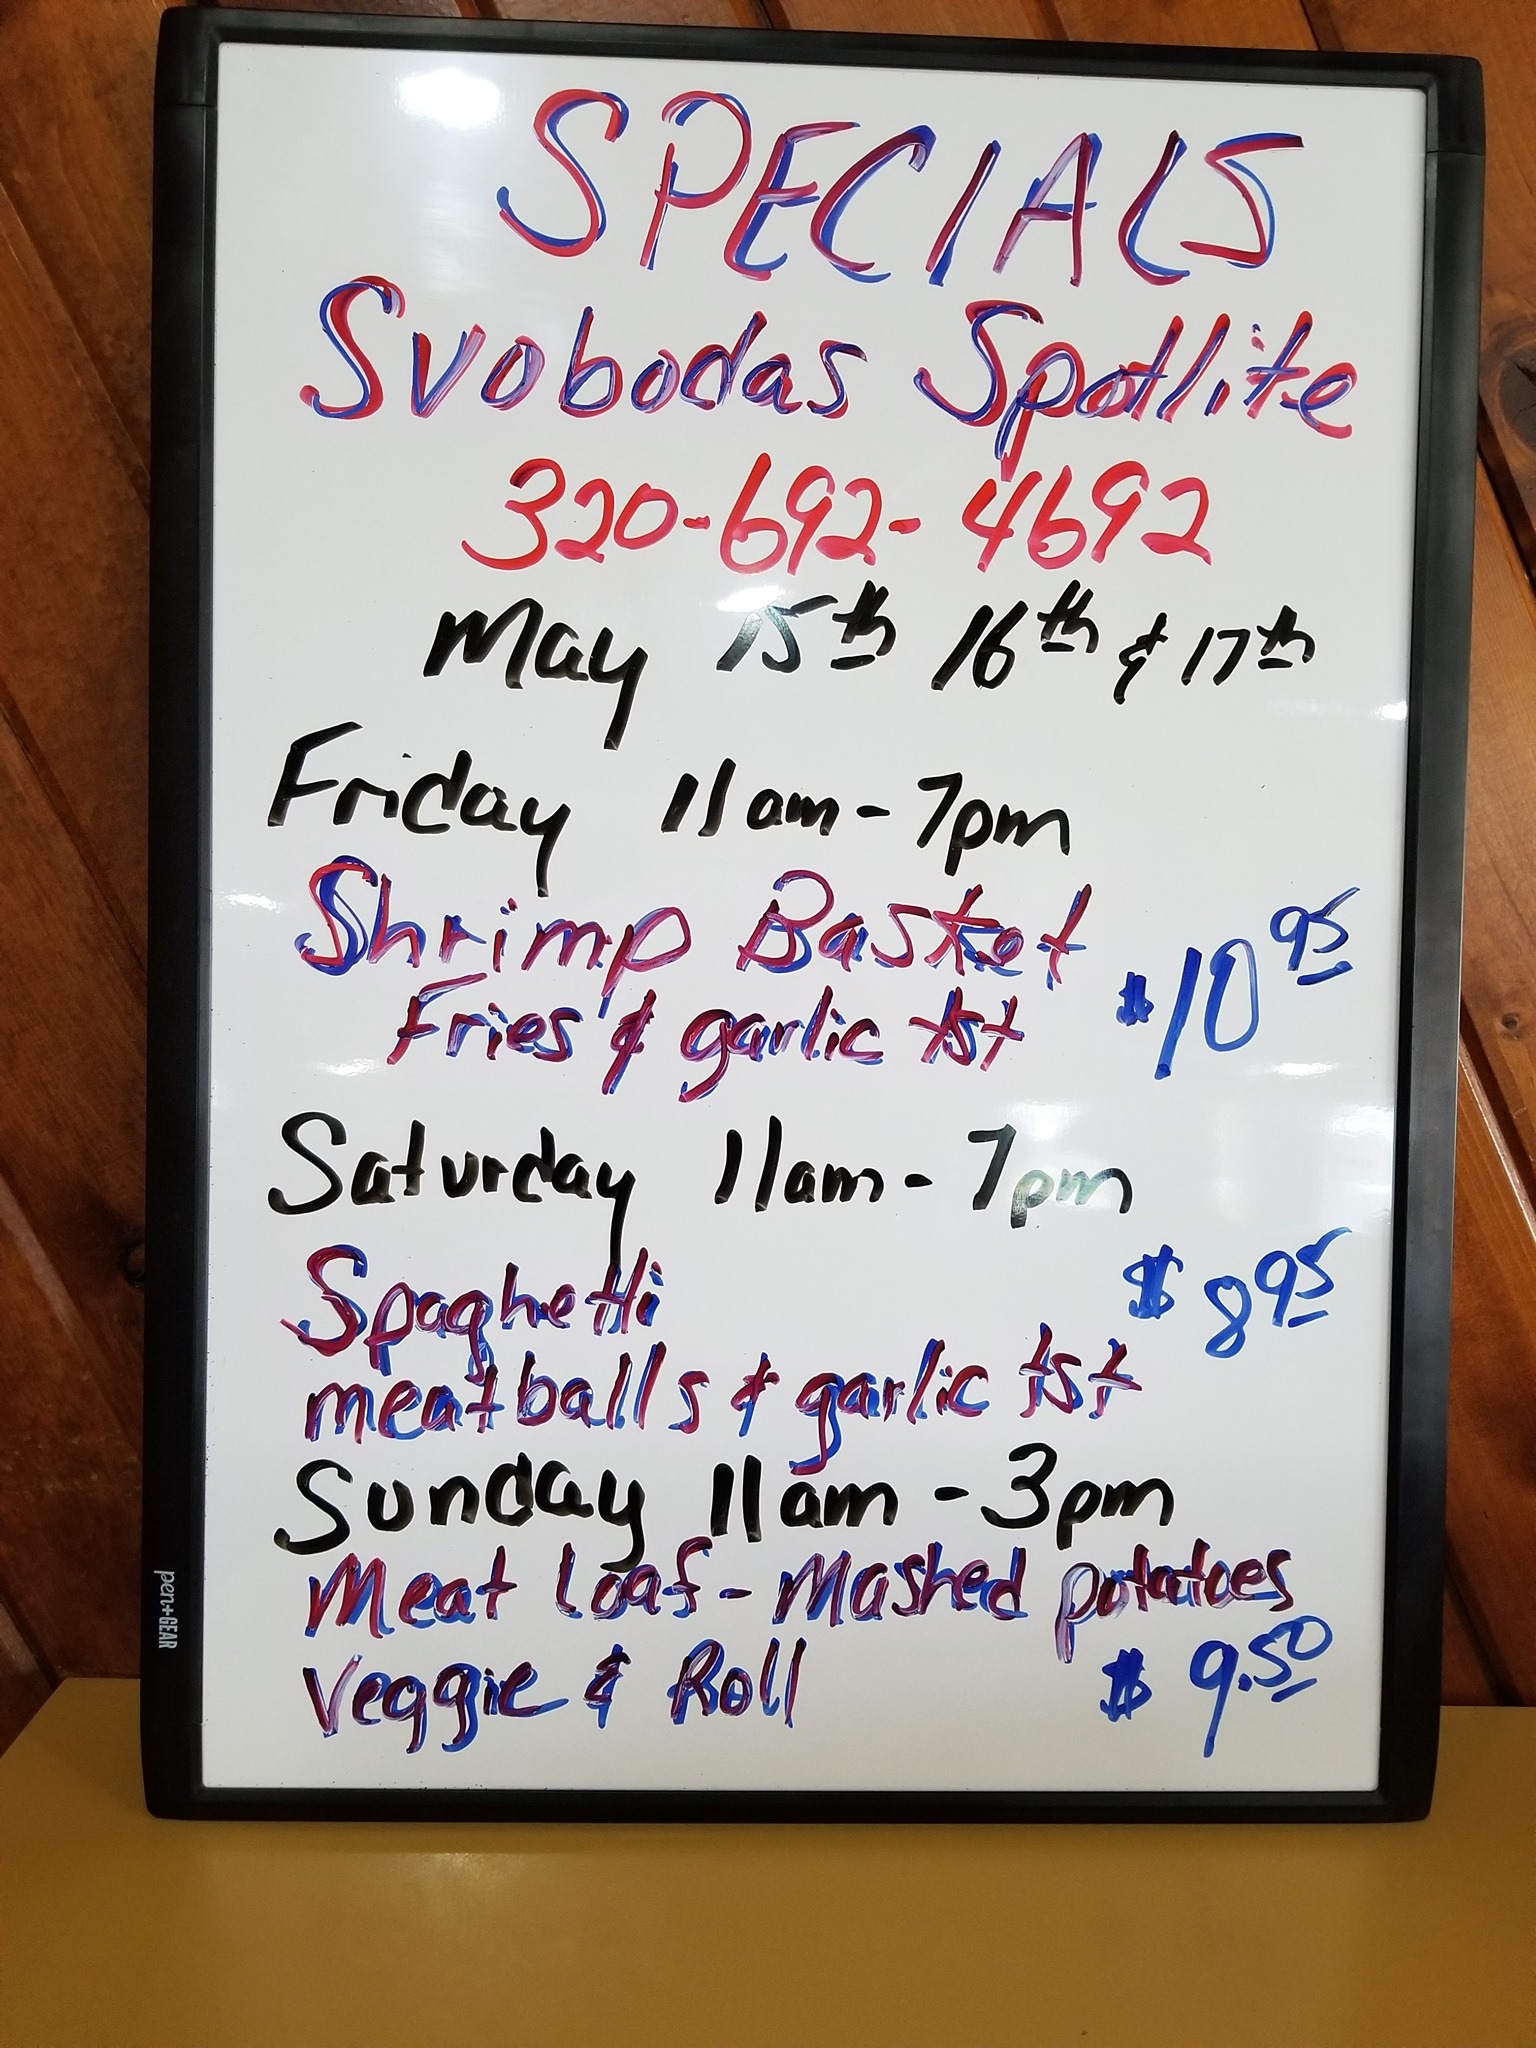 SPECIALS
Svobodas Spotlite
320-692-4692
May 15th 16th & 17th
Friday 11am-7pm
Shrimp Basket
Fries & garlic tst $10 95
Saturday 11am-7pm
Spaghetti $8 95
meatballs & garlic tst
Sunday 11am-3pm
Meat loaf-Mashed potatoes
Veggie & Roll $9.50
pen+GEAR